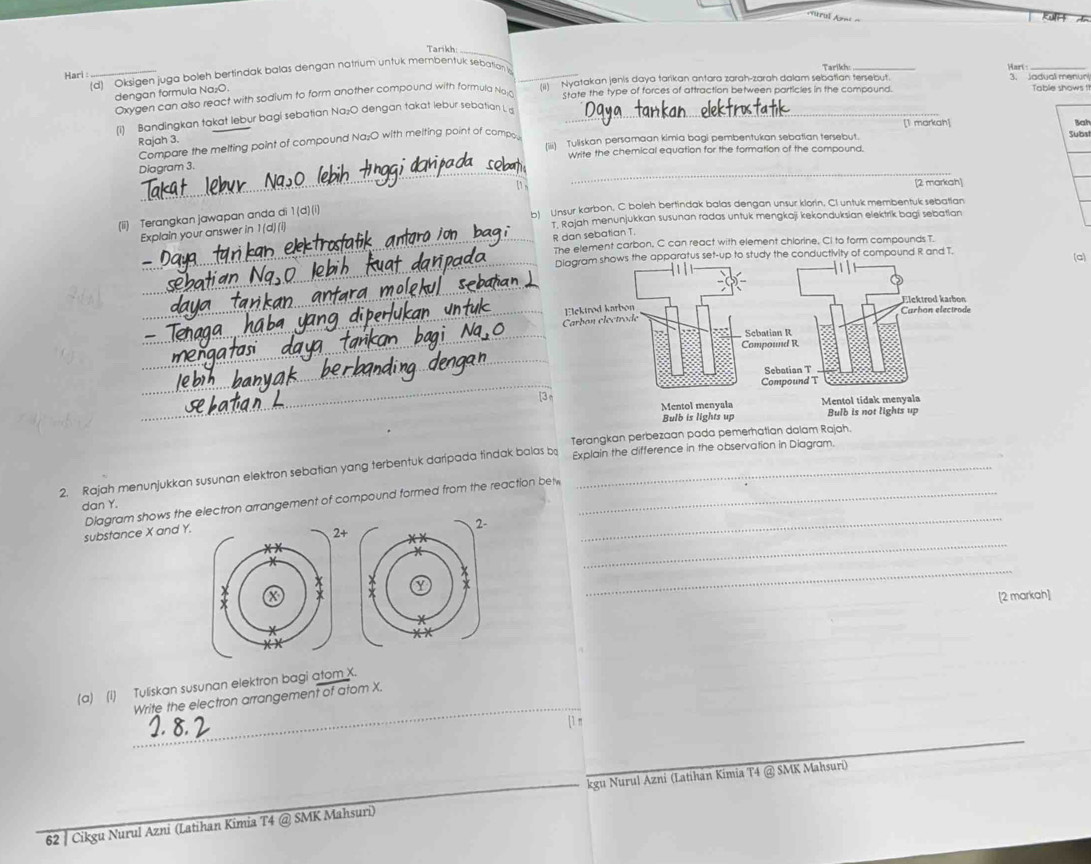 Nurul Azni
Hari :
Tarikh:
(d) Oksigen juga boleh bertindak balas dengan natrium untuk membentuk sebatian
dengan formula Na₂O.
Oxygen can also react with sodium to form another compound with formula Na₂O
(i) Bandingkan takat lebur bagi sebatian Na₂O dengan takat lebur sebatian L
Rajah 3.
Compare the melting point of compound Na₂O with melting point of compou
Diagram 3.
Takat lebur Na₂O lebih tinggi daripada sebati
[1
(ii) Terangkan jawapan anda di 1(d)(i)
Explain your answer in 1(d)(i)
- Daya tarikan elektrostatik antara ion bagi
sebatian Na₂O lebih kuat daripada
daya tarikan antara molekul sebatian L
- Tenaga haba yang diperlukan untuk
mengatasi daya tarikan bagi Na₂O
lebih banyak berbanding dengan
sebatian L
[3
2. Rajah menunjukkan susunan elektron sebatian yang terbentuk daripada tindak balas ba
dan Y.
Diagram shows the electron arrangement of compound formed from the reaction betw
substance X and Y.
2+
2-
X
Y
(a) (i) Tuliskan susunan elektron bagi atom X.
Write the electron arrangement of atom X.
2.8.2
[1 m
62 | Cikgu Nurul Azni (Latihan Kimia T4 @ SMK Mahsuri)
Tarikh:
(ii) Nyatakan jenis daya tarikan antara zarah-zarah dalam sebatian tersebut.
State the type of forces of attraction between particles in the compound.
Daya tarikan elektrostatik
[1 markah]
(iii) Tuliskan persamaan kimia bagi pembentukan sebatian tersebut.
Write the chemical equation for the formation of the compound.
[2 markah]
b) Unsur karbon, C boleh bertindak balas dengan unsur klorin, Cl untuk membentuk sebatian
T. Rajah menunjukkan susunan radas untuk mengkaji kekonduksian elektrik bagi sebatian
R dan sebatian T.
The element carbon, C can react with element chlorine, Cl to form compounds T.
Diagram shows the apparatus set-up to study the conductivity of compound R and T.
Elektrod karbon
Carbon electrode
Elektrod karbon
Carbon electrode
Sebatian R
Compound R
Sebatian T
Compound T
Mentol menyala
Bulb is lights up
Mentol tidak menyala
Bulb is not lights up
Terangkan perbezaan pada pemerhatian dalam Rajah.
Explain the difference in the observation in Diagram.
[2 markah]
kgu Nurul Azni (Latihan Kimia T4 @ SMK Mahsuri)
Hari :
3. Jadual menunj
Table shows t
Bah
Subst
(a)